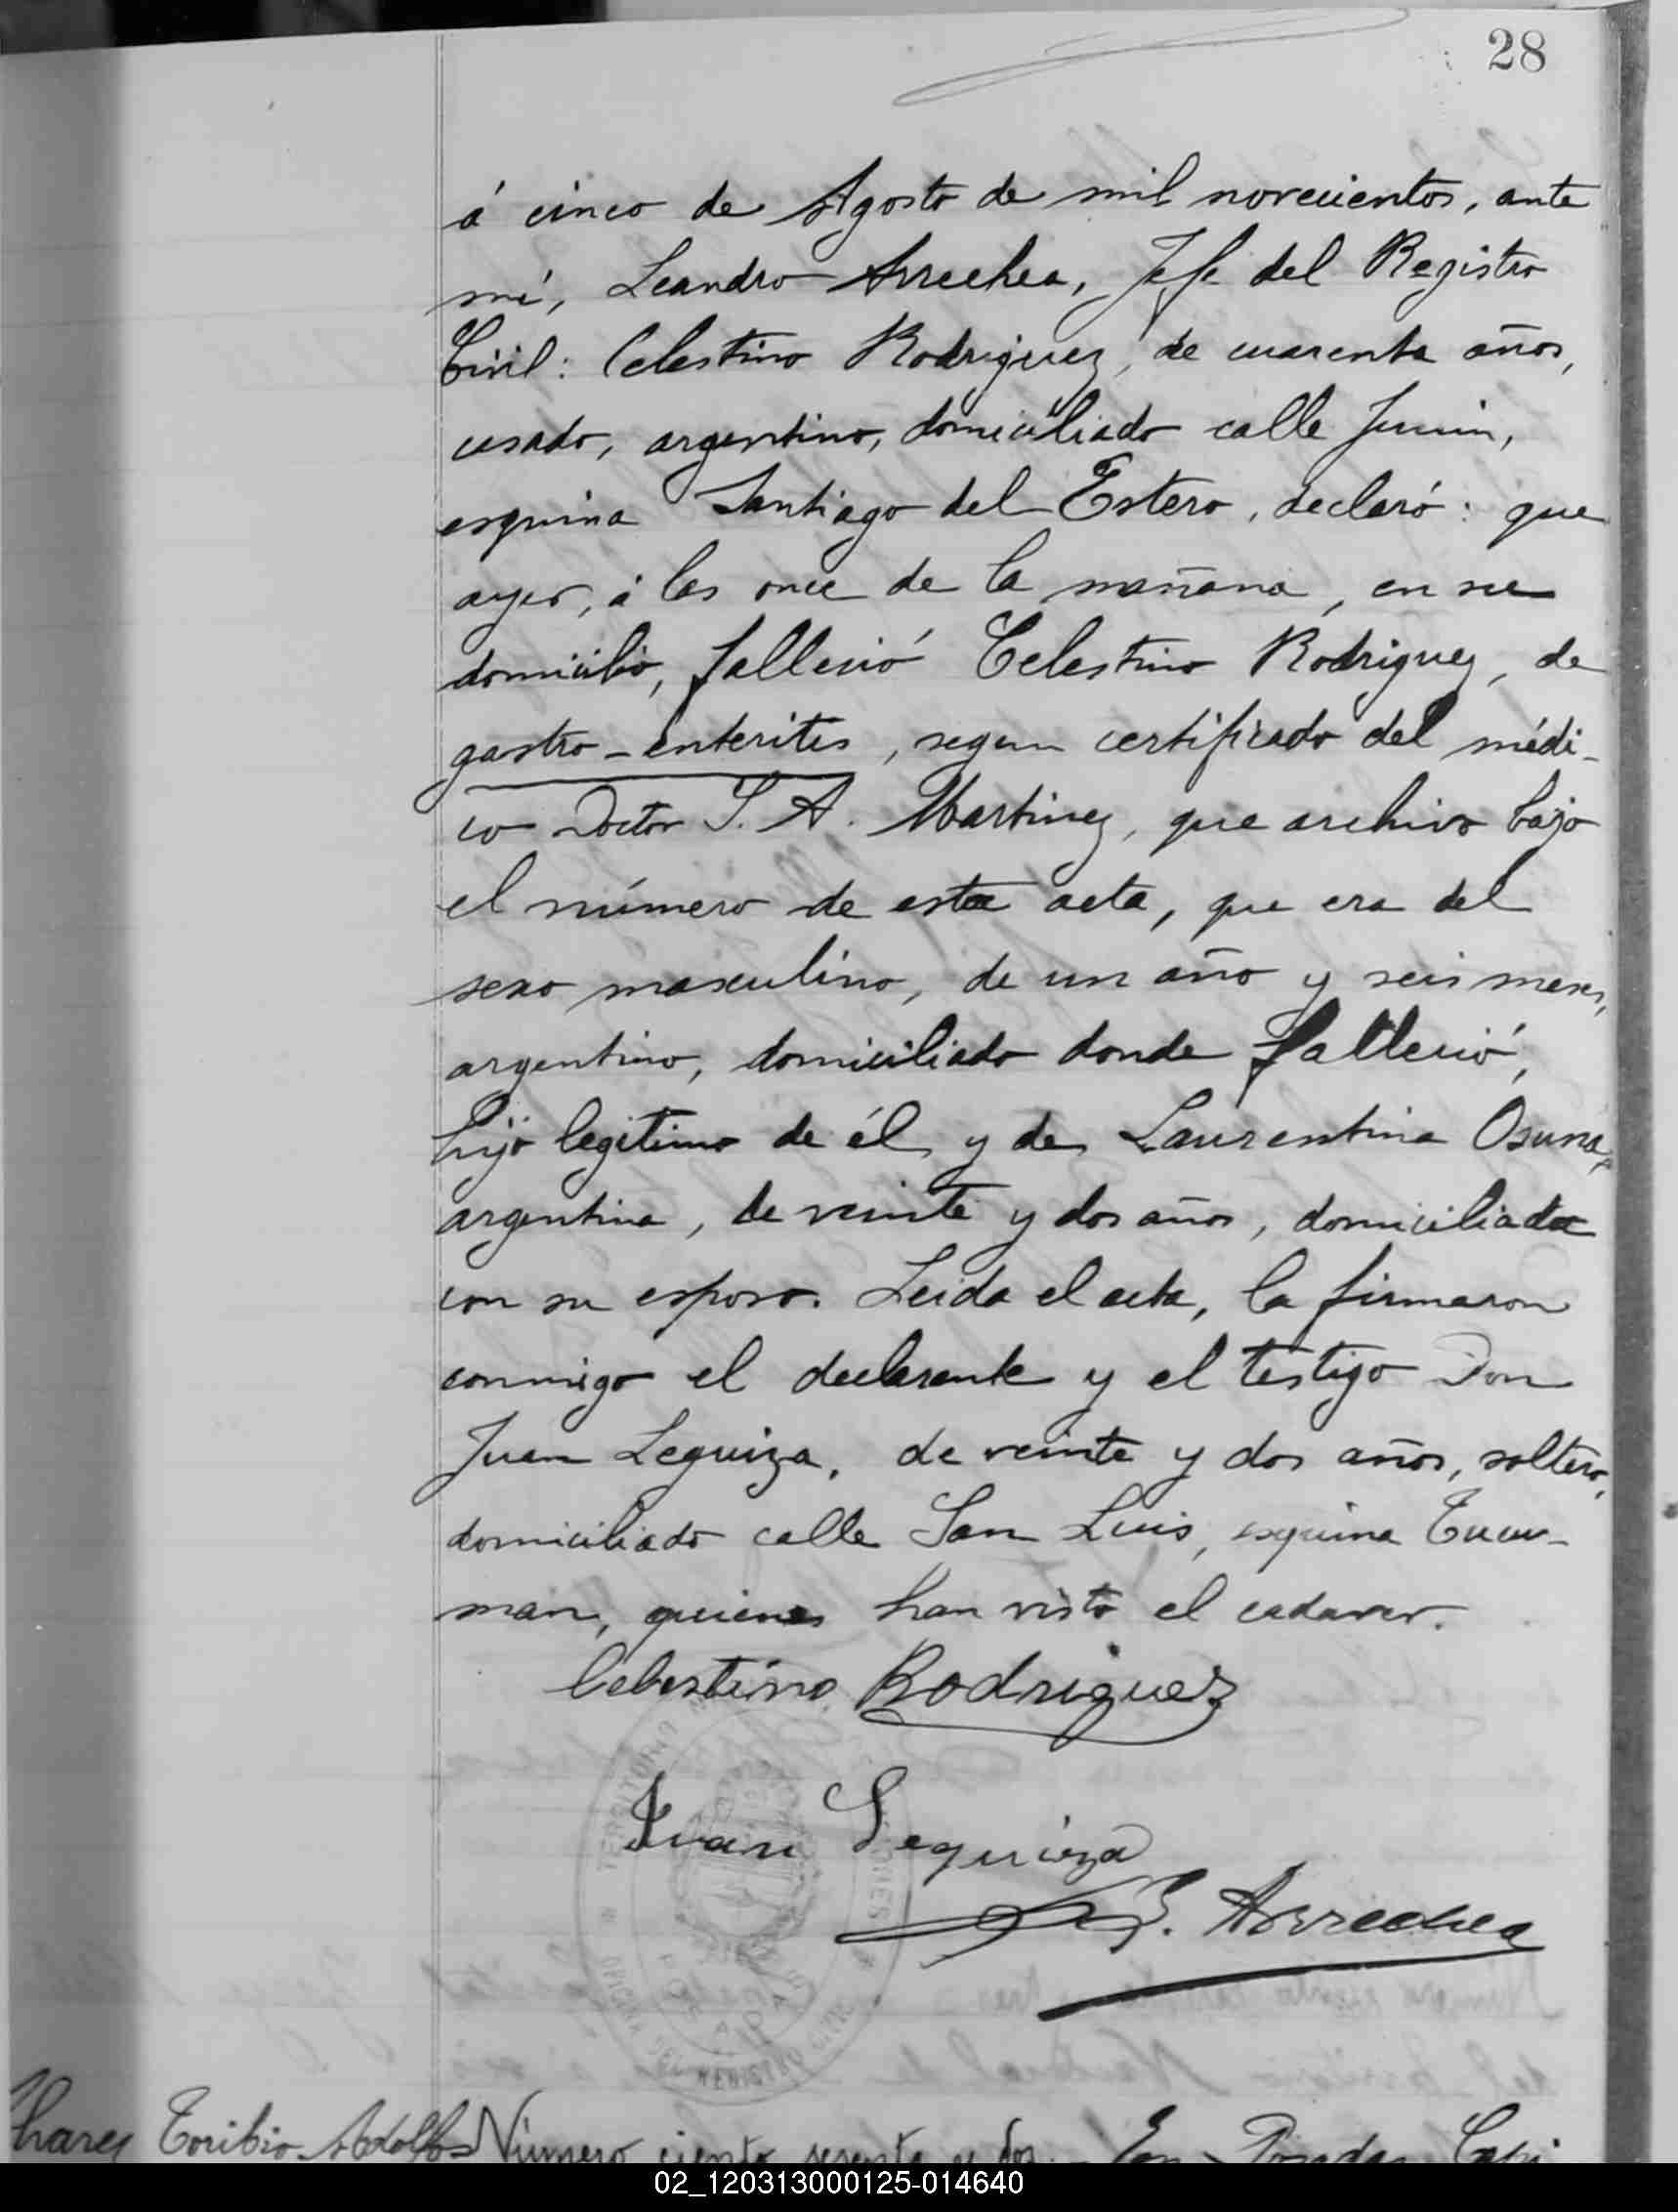 28
á cinco de Agosto de mil novecientos, ante
mí, Leandro Arrechea, Jefe del Registro
Civil: Celestino Rodriguez, de cuarenta años,
casado, argentino, domiciliado calle Junin,
esquina Santiago del Estero, declaró: que
ayer, á las once de la mañana, en su
domicilio, falleció Celestino Rodriguez, de
gastro-enteritis, segun certificado del médi-
co Doctor S. A. Martinez, que archivo bajo
el número de esta acta, que era del
sexo masculino, de un año y seis meses,
argentino, domiciliado donde falleció,
hijo legítimo de él y de Laurentina Osuna,
argentina, de veinte y dos años, domiciliada
con su esposo. Leida el acta, la firmaron
conmigo el declarante y el testigo Don
Juan Leguiza, de veinte y dos años, soltero,
domiciliado calle San Luis, esquina Tucu-
man, quienes han visto el cadaver.
Celestino Rodriguez
Juan Leguiza
Arrechea
TERRITORIO MISIONES
POSADAS
OFICINA DEL REGISTRO CIVIL
Toribio Adolfo Número ciento sesenta y dos. En Posadas, Capi
02_120313000125-014640